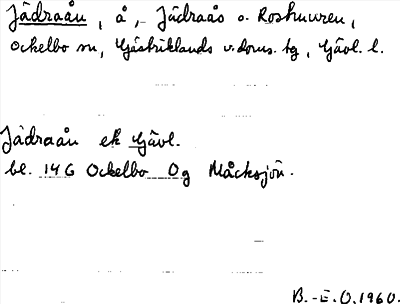 Jädraån, å, Jädraås o. Koskmuren,
Ockelbo sn, Gästriklands v. doms. tg, Gävl. l.
Jädraån ek Gävl.
bl. 14 G Ockelbo 0g Måcksjön.
B.-E.O. 1960.